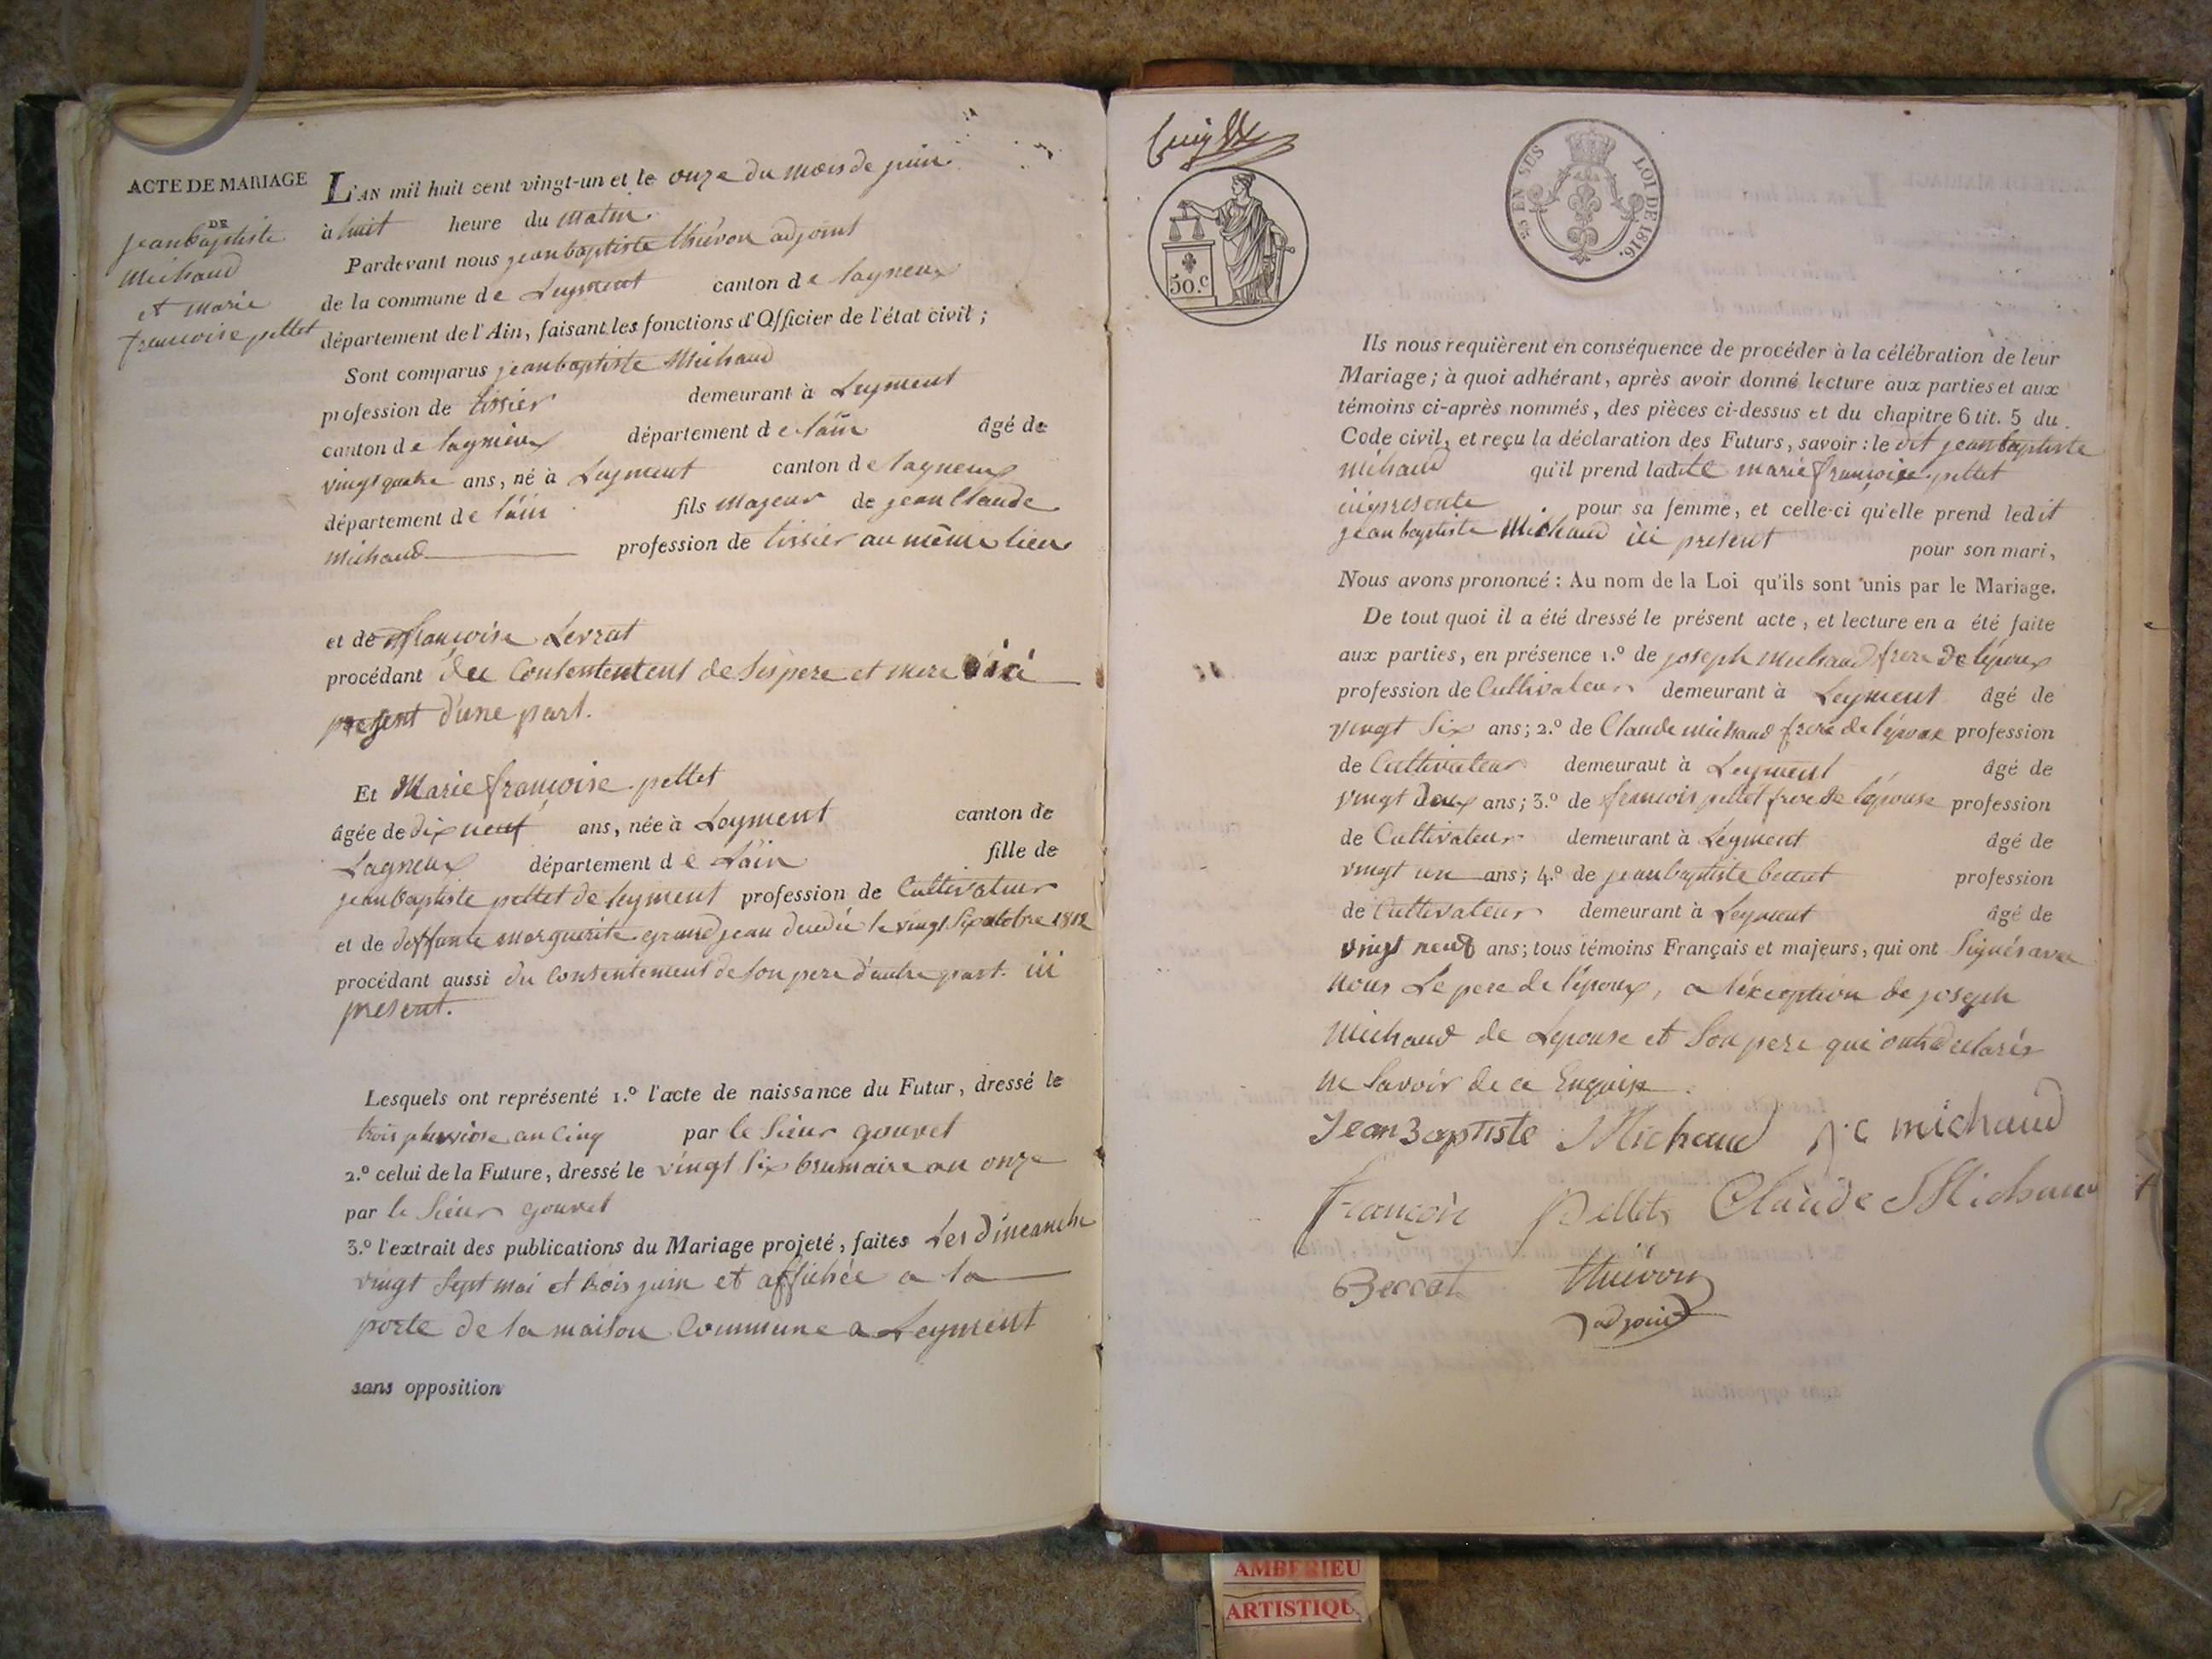 ACTE DE MARIAGE
DE
jeanbaptiste
Michaud
et marie
françoise pellet
L'AN mil huit cent vingt-un et le onze du mois de juin
à huit heure du matin
Pardevant nous jeanbaptiste thievon adjoint
de la commune de Leyment canton de lagneux
département de l'Ain, faisant les fonctions d'Officier de l'état civil ;
Sont comparus jeanbaptiste Michaud
profession de tissier demeurant à Leyment
canton de lagnieux département de l'ain âgé de
vingt quatre ans, né à Leyment canton de lagneux
département de l'ain fils majeur de jean Claude
michaud profession de tissier au même lieu
et de françoise Levrat
procédant du Consententent de ses pere et mere ici
present d'une part.
Et Marie françoise pellet
âgée de dix neuf ans, née à Leyment canton de
Lagneux département de L'ain fille de
jeanbaptiste pellet de leyment profession de Cultivateur
et de deffunte marguerite grand jean decedée le vingt Six octobre 1812
procédant aussi du Consentement de son pere d'autre part. ici
present.
Lesquels ont représenté 1.º l'acte de naissance du Futur, dressé le
trois pluviose an Cinq par le Sieur gouvet
2.º celui de la Future, dressé le vingt Six brumaire an onze
par le Sieur gouvet
3.º l'extrait des publications du Mariage projeté, faites Les dimeanche
vingt Sept mai et trois juin et affichée a la
porte de la maison Commune a Leyment
sans opposition
50.c
25 EN SUS LOI DE 1816.
Ils nous requièrent en conséquence de procéder à la célébration de leur
Mariage ; à quoi adhérant, après avoir donné lecture aux parties et aux
témoins ci-après nommés, des pièces ci-dessus et du chapitre 6 tit. 5 du
Code civil, et reçu la déclaration des Futurs, savoir : le dit jeanbaptiste
michaud qu'il prend ladite marie françoise pellet
ici presente pour sa femme, et celle-ci qu'elle prend ledit
jeanbaptiste Michaud ici present pour son mari,
Nous avons prononcé : Au nom de la Loi qu'ils sont unis par le Mariage.
De tout quoi il a été dressé le présent acte, et lecture en a été faite
aux parties, en présence 1.º de joseph michaud frere de l'époux
profession de Cultivateur demeurant à Leyment âgé de
vingt Six ans ; 2.º de Claude michaud frere de l'époux profession
de Cultivateur demeuraut à Leyment âgé de
vingt deux ans ; 3.º de françois pellet frere de l'épouse profession
de Cultivateur demeurant à Leyment âgé de
vingt un ans ; 4.º de jeanbaptiste profession
de Cultivateur demeurant à Leyment âgé de
vingt neuf ans ; tous témoins Français et majeurs, qui ont Signés avec
nous Le pere de l'époux, a l'éxception de joseph
Michaud de Lepouse et Son pere qui ont declarés
ne Savoir de ce Enquis
Jean Baptiste Michaud j. c michaud
françois Pellet Claude Michaud
Beccat thievon
adjoint
AMBERIEU
ARTISTIQU